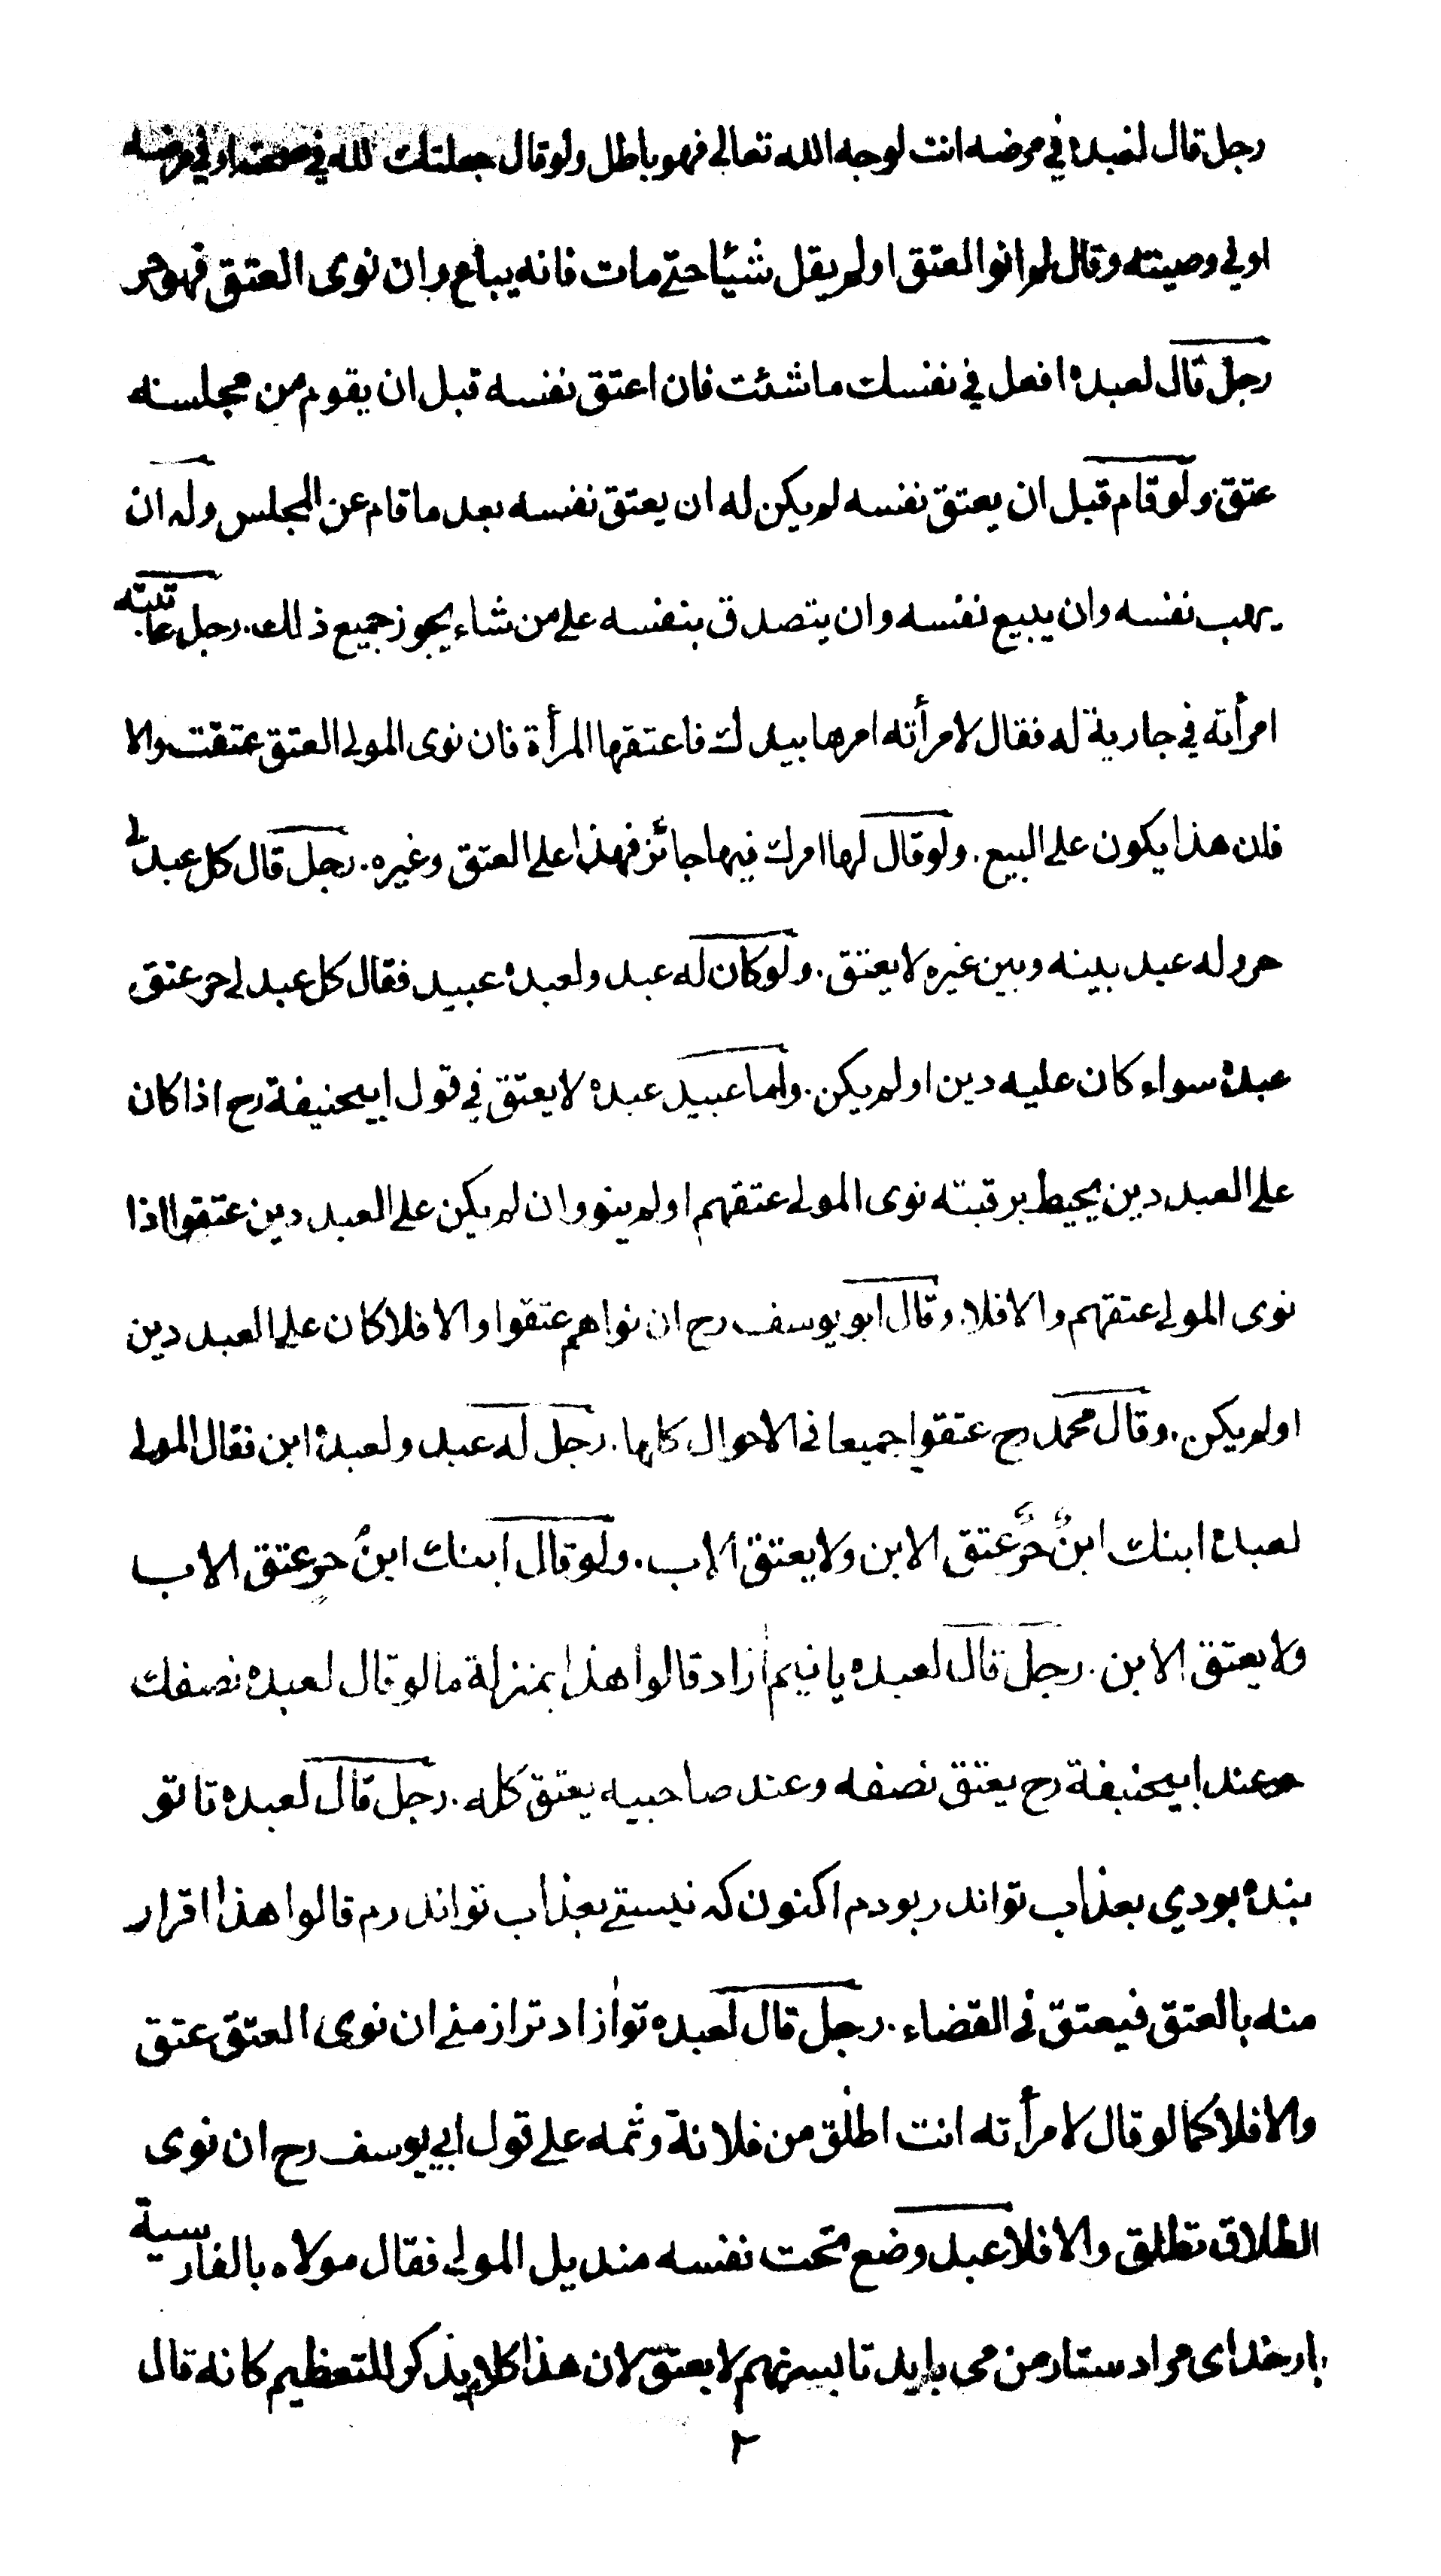 رجل قال لعبده في مرضه انت لوجه الله تعالى فهو باطل ولو قال جعلتك لله في صحته او في مرضه
او في وصيته وقال لم انو العتق او لم يقل شيئا حتى مات فانه يباع وان نوى العتق فهو حر
رجل قال لعبده افعل في نفسك ما شئت فان اعتق نفسه قبل ان يقوم من مجلسه
عتق ولو قام قبل ان يعتق نفسه لم يكن له ان يعتق نفسه بعد ما قام عن المجلس وله ان
يهب نفسه وان يبيع نفسه وان يتصدق بنفسه على من شاء يجوز جميع ذلك. رجل عاتبته
امرأته في جارية له فقال لامرأته امرها بيدك فاعتقها المرأة فان نوى المولى العتق عتقت والا
فلان هذا يكون على البيع. ولو قال لها امرك فيها جائز فهذا على العتق وغيره. رجل قال كل عبد لي
حر وله عبد بينه وبين غيره لا يعتق. ولو كان له عبد ولعبده عبيد فقال كل عبد لي حر عتق
عبده سواء كان عليه دين او لم يكن. واما عبيد عبده لا يعتق في قول ابيحنيفة رح اذا كان
على العبد دين يحيط برقبته نوى المولى عتقهم او لم ينو وان لم يكن على العبد دين عتقوا اذا
نوى المولى عتقهم والا فلا. وقال ابو يوسف رح ان نواهم عتقوا والا فلا كان على العبد دين
او لم يكن. وقال محمد رح عتقوا جميعا في الاحوال كلها. رجل له عبد ولعبده ابن فقال المولى
لعبده ابنك ابنٌ حُرٌّ عتق الابن ولا يعتق الاب. ولو قال ابنك ابنُ حرٍ عتق الاب
ولا يعتق الابن. رجل قال لعبده يا نيم ازاد قالوا هذا بمنزلة ما لو قال لعبده نصفك
حر عند ابيحنيفة رح يعتق نصفه وعند صاحبيه يعتق كله. رجل قال لعبده تا تو
بنده بودي بعذاب تو اندر بودم اكنون كه نيستي بعذاب تو اندرم قالوا هذا اقرار
منه بالعتق فيعتق في القضاء. رجل قال لعبده تو ازاد تر از مني ان نوى العتق عتق
والا فلا كما لو قال لامرأته انت اطلق من فلانة وثمه على قول ابي يوسف رح ان نوى
الطلاق تطلق والا فلا عبد وضع تحت نفسه منديل المولى فقال مولاه بالفارسية
بار خداى مرا دستار من مى بايد تا بسر نهم لا يعتق لان هذا كلام يذكر للتعظيم كانه قال
٢